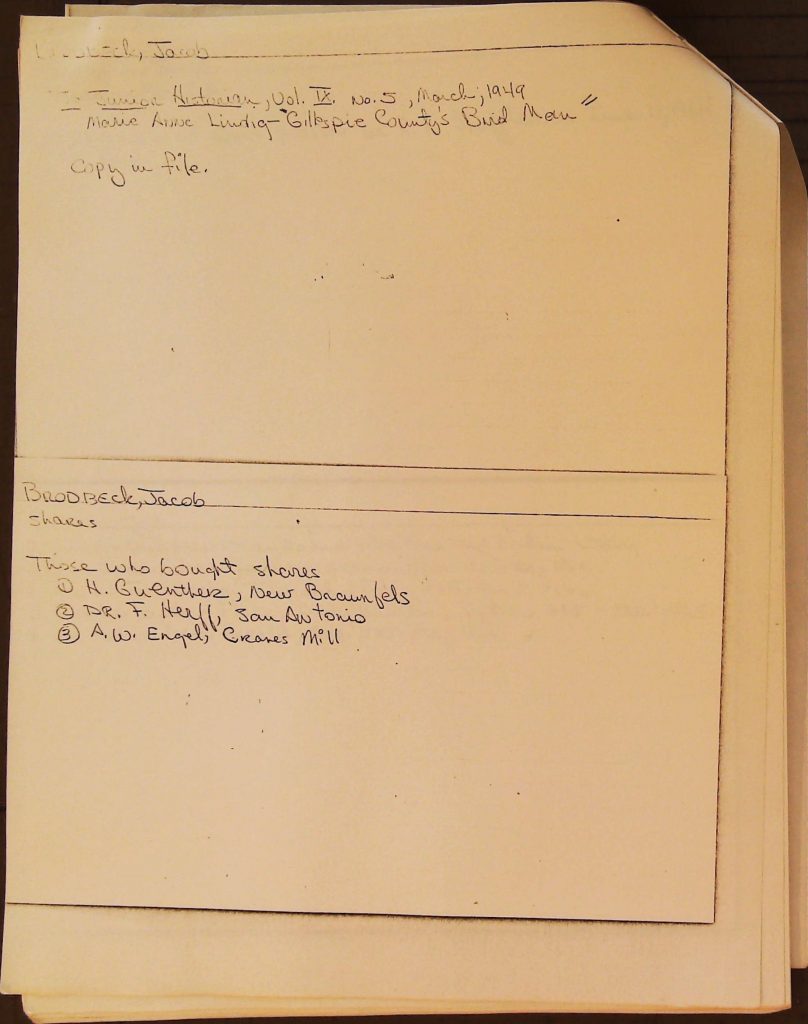 Jacob
Junior Historian, Vol. IX. No. 5, March, 1949
Marie Anne Lindig- "Gillespie County's Bird Man"
Copy in file.
BRODBECK, Jacob
shares
Those who bought shares
① H. Guenther, New Braunfels
② DR. F. Herff, San Antonio
③ A.W. Engel, Cranes Mill